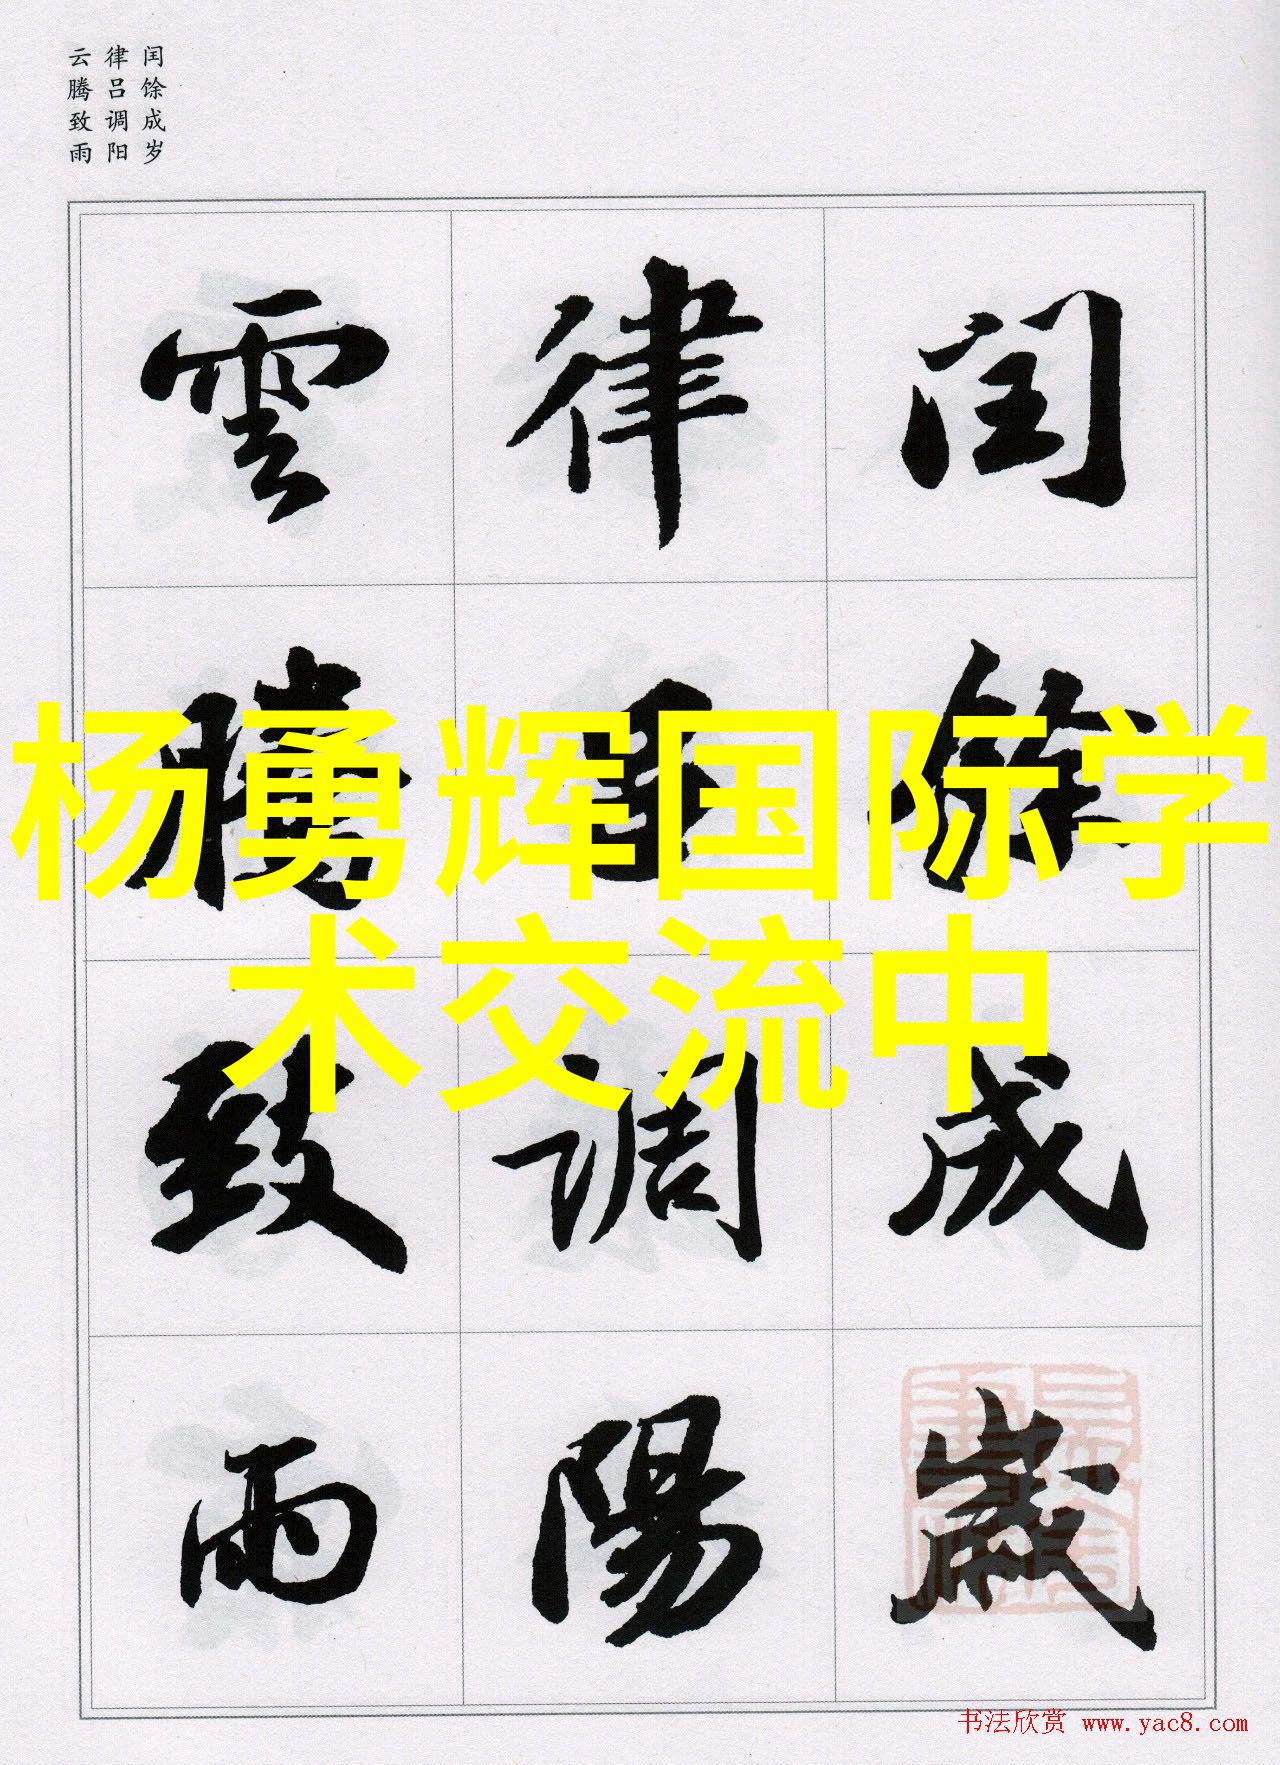 闰馀成岁
律吕调阳
云腾致雨
闰馀成歲
律吕调陽
雲騰致雨
杨勇辉国际学
术交流中
书法欣赏 www.yac8.com